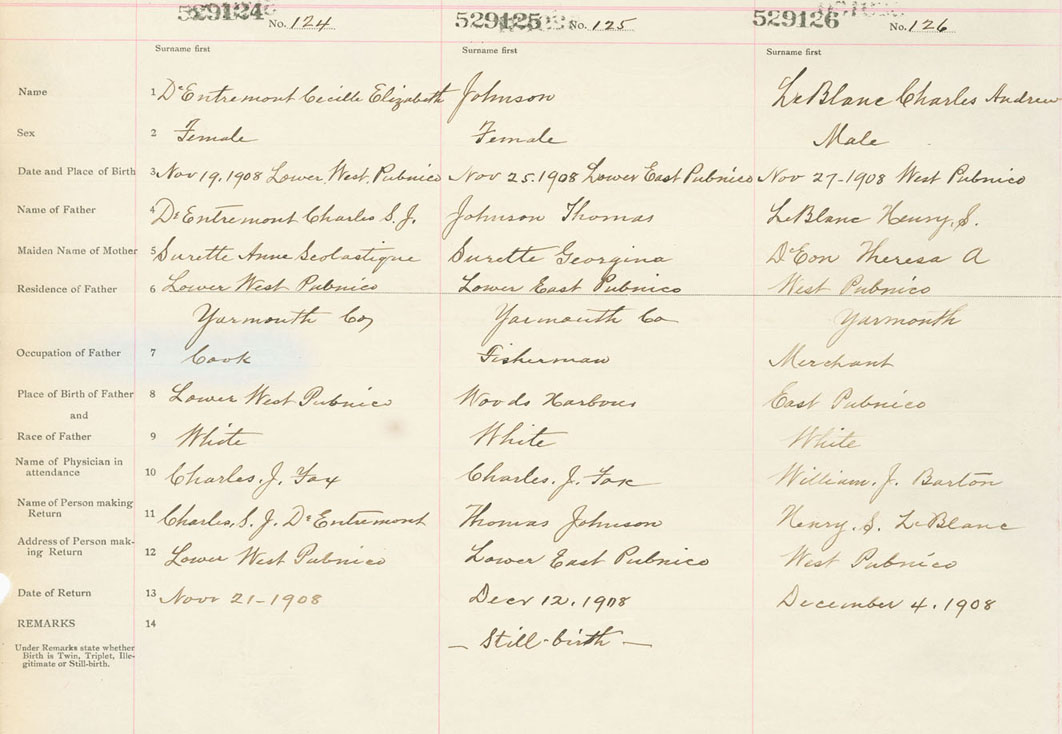 529124 No. 124 529125 No. 125 529126 No. 126
Surname first Surname first Surname first
Name 1 D'Entremont Cecille Elizabeth Johnson LeBlanc Charles Andrew
Sex 2 Female Female Male
Date and Place of Birth 3 Nov 19, 1908 Lower West Pubnico Nov 25. 1908 Lower East Pubnico Nov 27 - 1908 West Pubnico
Name of Father 4 D'Entremont Charles S. J. Johnson Thomas LeBlanc Henry, S.
Maiden Name of Mother 5 Surette Anne Scolastique Surette Georgina D'Eon Theresa A
Residence of Father 6 Lower West Pubnico Lower East Pubnico West Pubnico
Yarmouth Co Yarmouth Co Yarmouth
Occupation of Father 7 Cook Fisherman Merchant
Place of Birth of Father 8 Lower West Pubnico Woods Harbour East Pubnico
and
Race of Father 9 White White White
Name of Physician in
attendance 10 Charles. J. Fox Charles. J. Fox William. J. Barton
Name of Person making
Return 11 Charles, S. J. D'Entremont Thomas Johnson Henry. S. LeBlanc
Address of Person mak-
ing Return 12 Lower West Pubnico Lower East Pubnico West Pubnico
Date of Return 13 Novr 21 - 1908 Decr 12. 1908 December 4. 1908
REMARKS 14
— Still-birth —
Under Remarks state whether
Birth is Twin, Triplet, Ille-
gitimate or Still-birth.